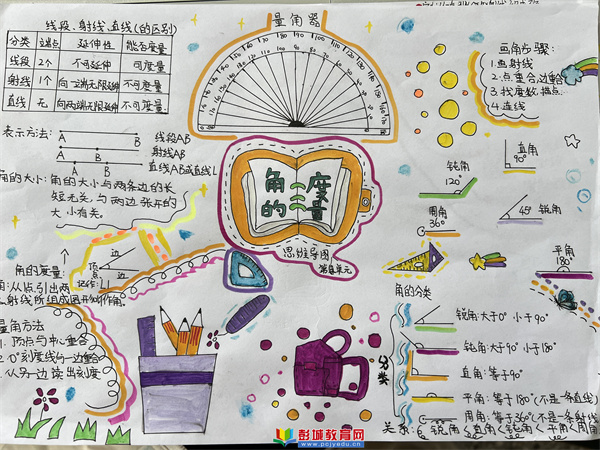 线段、射线、直线(的区别)
分类 端点 延伸性 能否度量
线段 2个 不可延伸 可度量
射线 1个 向一端无限延伸 不可度量
直线 无 向两端无限延伸 不可度量
表示方法:
A B 线段AB
A B 射线AB
A B 直线AB或直线L
角的大小:角的大小与两条边的长
短无关,与两边张开的
大小有关。
角的度量:
顶点
边
边
记作:∠1
角:从一点引出两
射线所组成图形叫作角。
量角方法
1.顶点与中心重合
2.0°刻度线与一边重合
3.从另一边读出刻度
量角器
角的度量
思维导图
第三单元
画角步骤:
1.画射线
2.点重合,边重合
3.找度数,描点
4.连线
直角
90°
钝角
120°
45° 锐角
周角
360°
平角
180°
角的分类
分类
锐角:大于0° 小于90°
钝角:大于90° 小于180°
直角:等于90°
平角:等于180°(不是一条直线)
周角:等于360°(不是一条射线)
关系:锐角<直角<钝角<平角<周角
彭城教育网
www.pcjyedu.cn